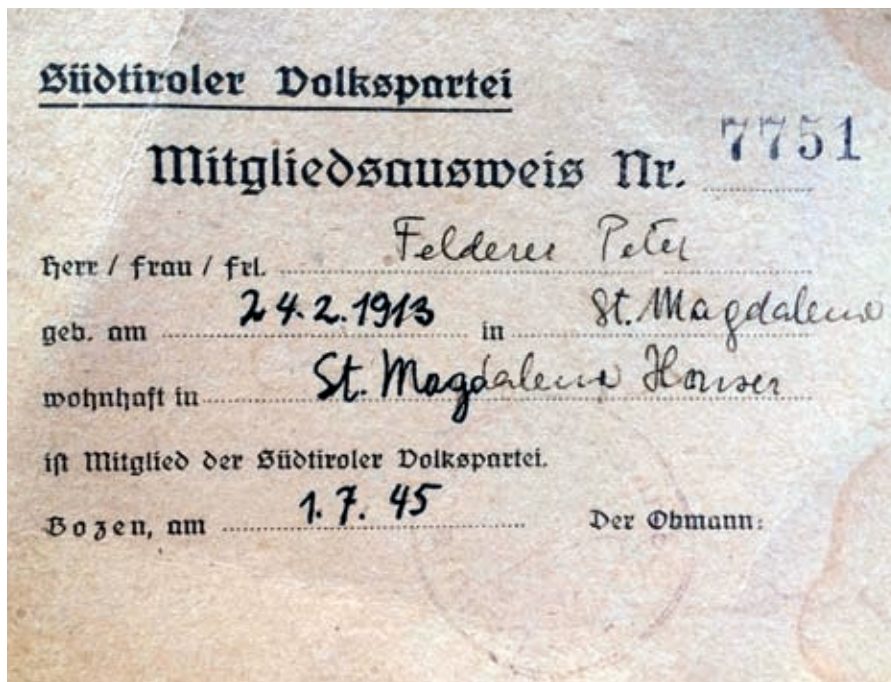 Südtiroler Volkspartei
Mitgliedsausweis Nr. 7751
Herr / Frau / Frl. Felderer Peter
geb. am 24.2.1913 in St. Magdalena
wohnhaft in St. Magdalena
ist Mitglied der Südtiroler Volkspartei.
Bozen, am 1. 7. 45 Der Obmann: